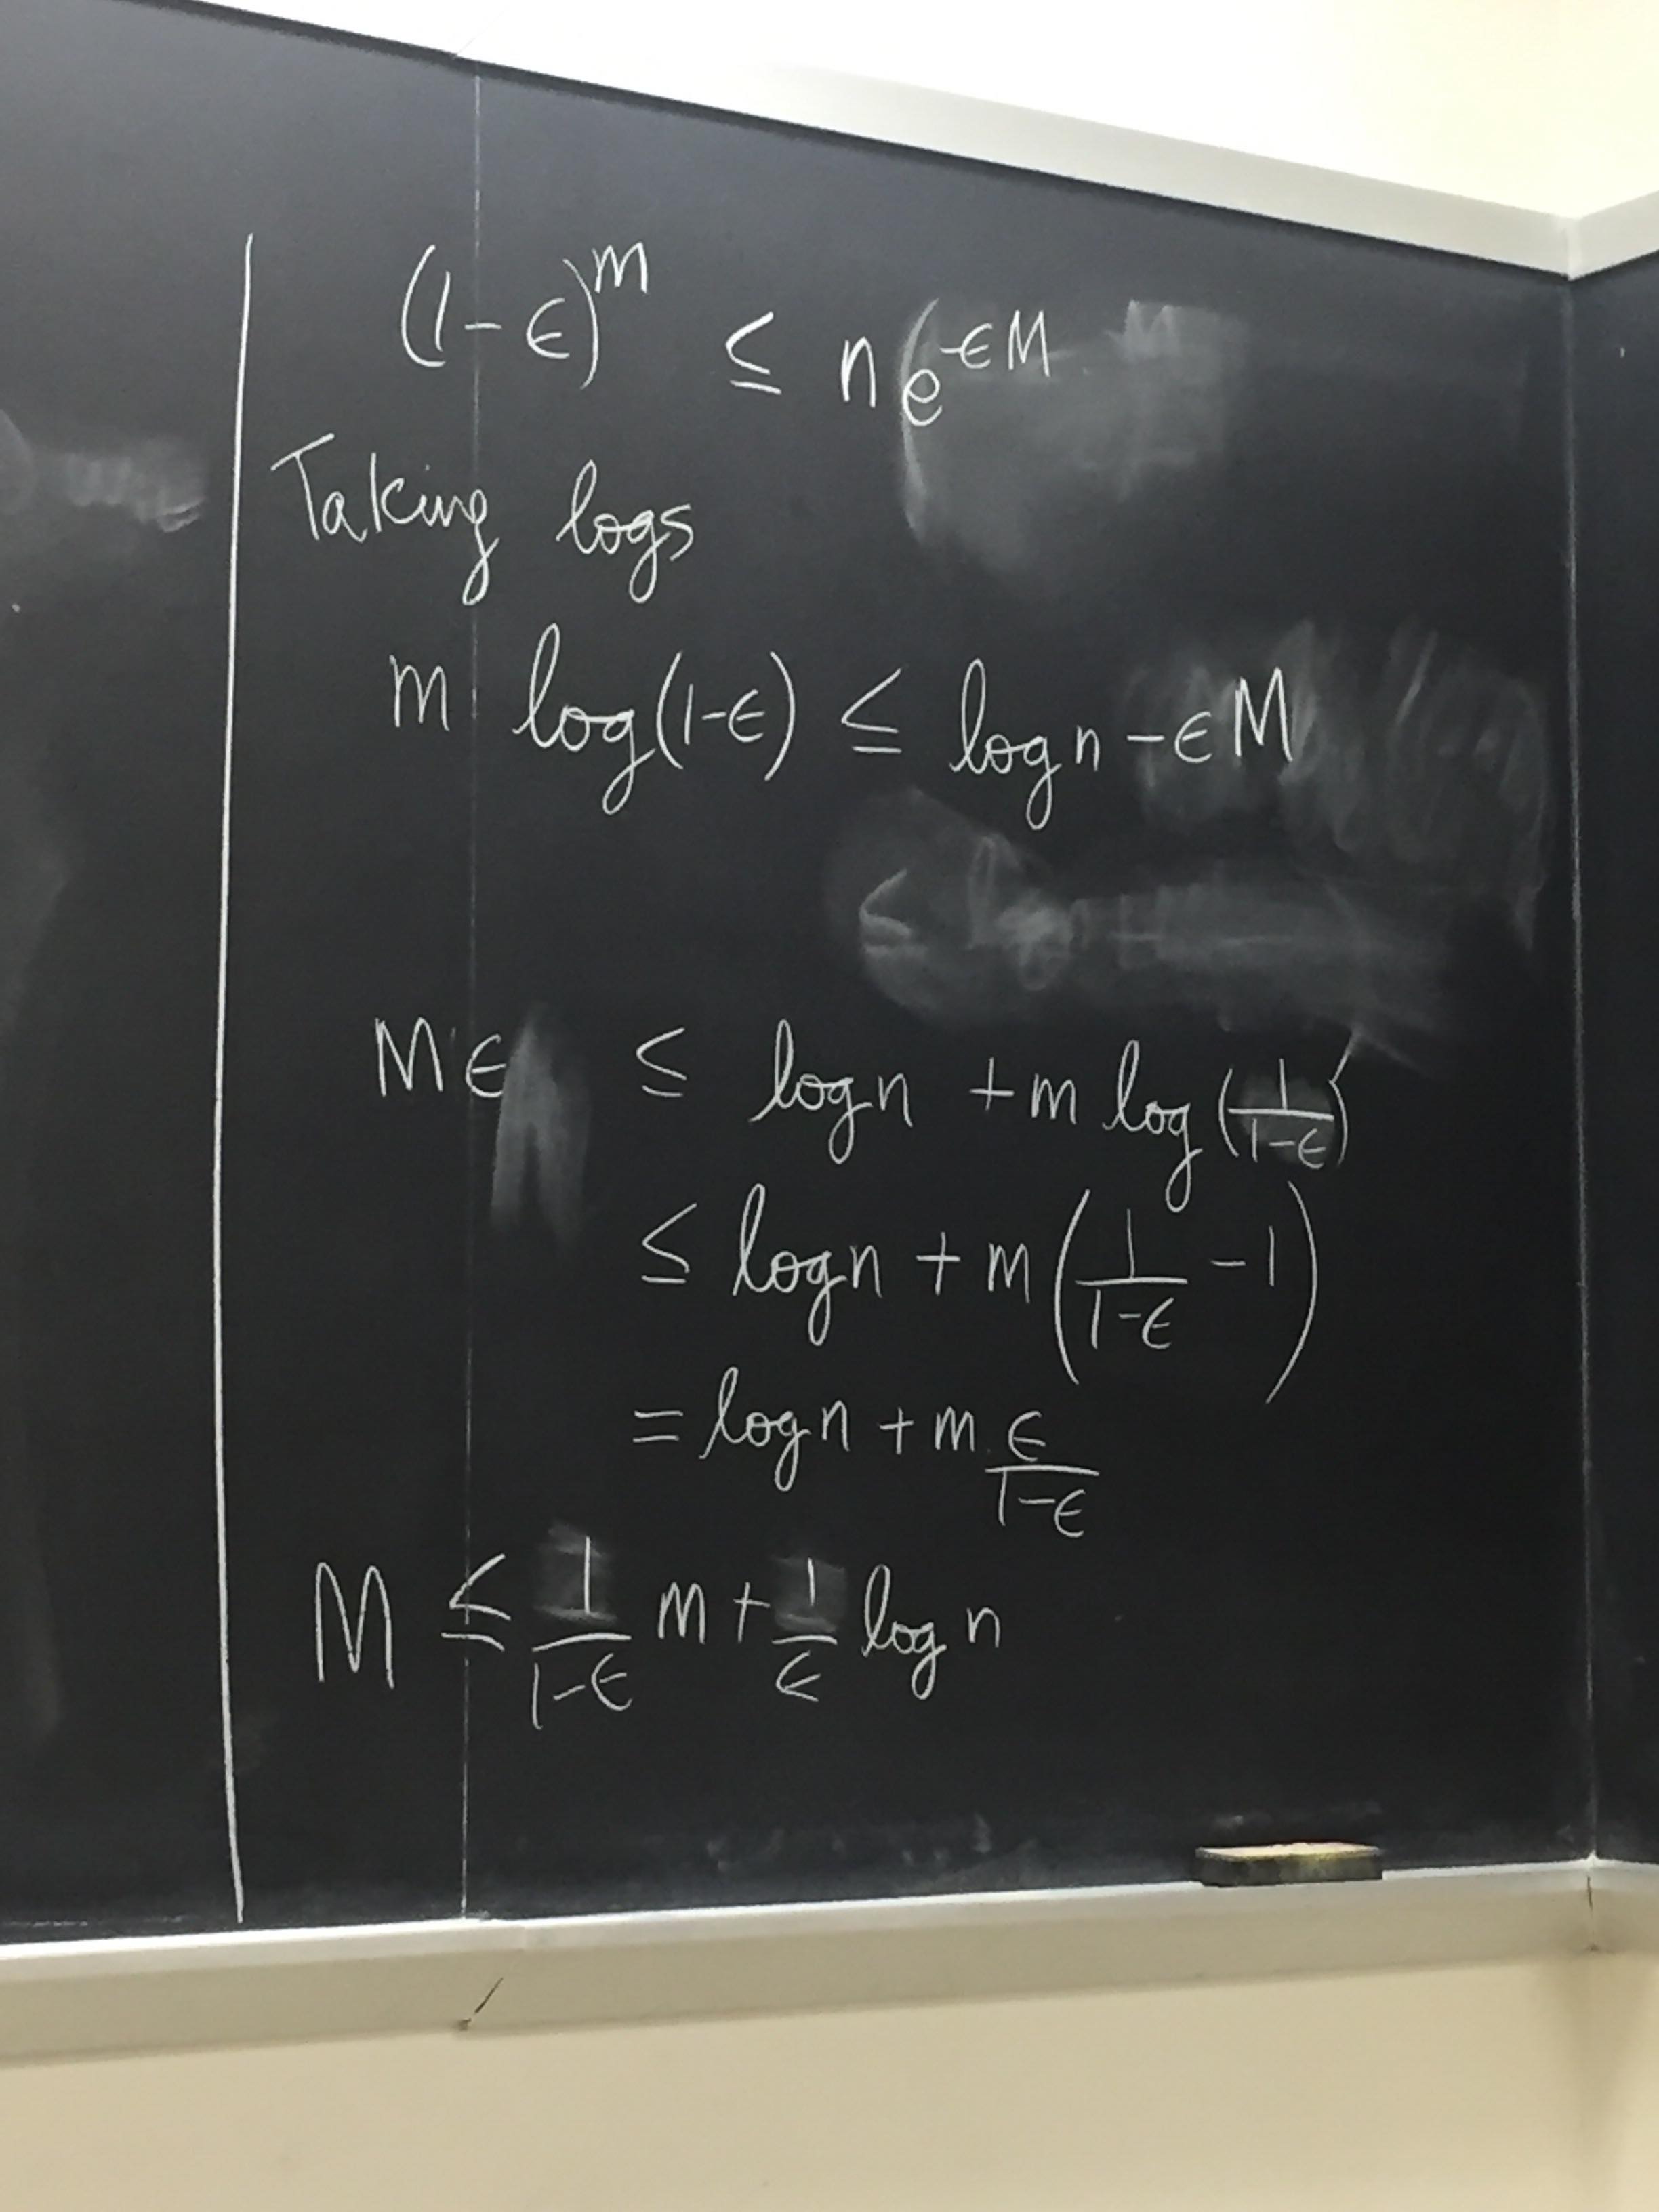 (1-ϵ)^m ≤ n e^{-ϵM}
Taking logs
m log(1-ϵ) ≤ log n - ϵM
Mϵ ≤ log n + m log(1/(1-ϵ))
≤ log n + m(1/(1-ϵ) - 1)
= log n + m ϵ/(1-ϵ)
M ≤ 1/(1-ϵ) m + 1/ϵ log n